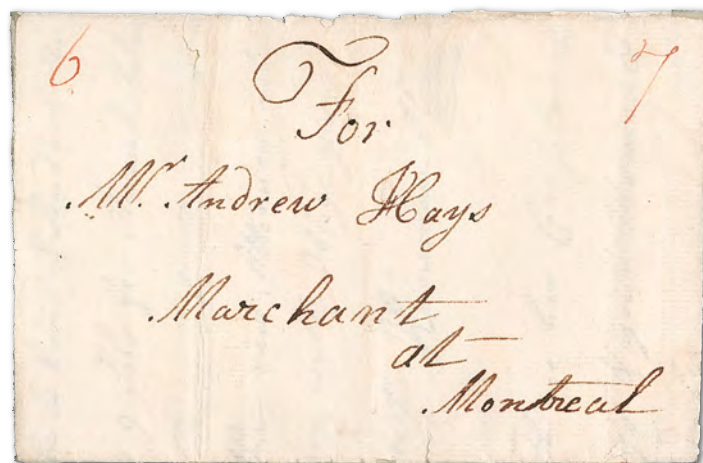 6 7
For
Mr. Andrew Hays
Marchant
at
Montreal